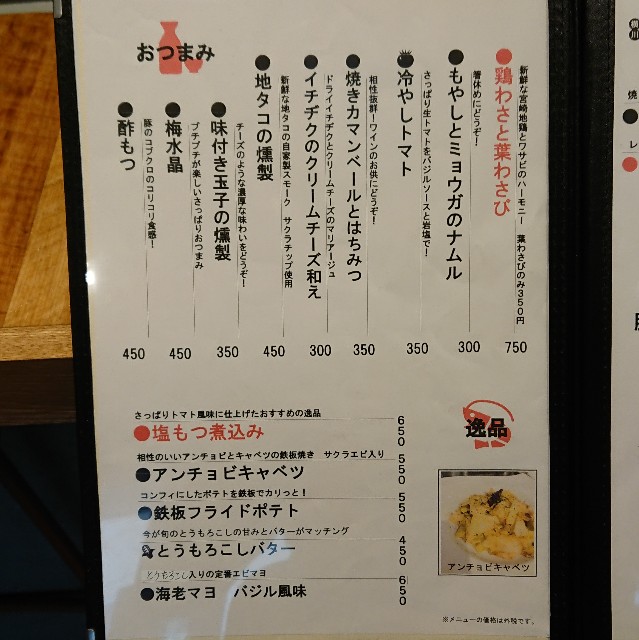 おつまみ
●鶏わさと葉わさび
新鮮な宮崎地鶏とワサビのハーモニー 葉わさびのみ350円
750
●もやしとミョウガのナムル
箸休めにどうぞ!
300
冷やしトマト
さっぱり生トマトをバジルソースと岩塩で!
350
●焼きカマンベールとはちみつ
相性抜群!ワインのお供にどうぞ!
350
●イチヂクのクリームチーズ和え
ドライイチヂクとクリームチーズのマリアージュ
300
●地タコの燻製
新鮮な地タコの自家製スモーク サクラチップ使用
450
●味付き玉子の燻製
チーズのような濃厚な味わいをどうぞ!
350
●梅水晶
プチプチが楽しいさっぱりおつまみ
450
●酢もつ
豚のコブクロのコリコリ食感!
450
逸品
さっぱりトマト風味に仕上げたおすすめの逸品
●塩もつ煮込み
650
相性のいいアンチョビとキャベツの鉄板焼き サクラエビ入り
●アンチョビキャベツ
550
コンフィにしたポテトを鉄板でカリっと!
●鉄板フライドポテト
550
今が旬のとうもろこしの甘みとバターがマッチング
とうもろこしバター
450
とうもろこし入りの定番エビマヨ
●海老マヨ バジル風味
650
アンチョビキャベツ
※メニューの価格は外税です。
焼
レ